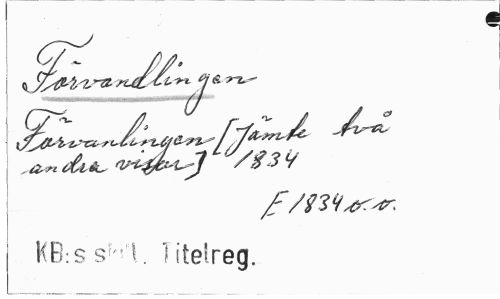 Förvandlingen
Förvanlingen [jämte två
andra visor] 1834
E 1834 v. v.
KB:s Titelreg.